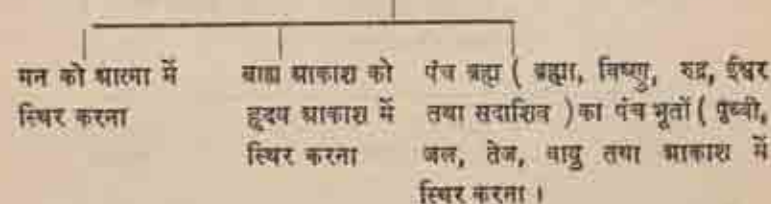 मन को आत्मा में
स्थिर करना
बाह्य आकाश को
हृदय आकाश में
स्थिर करना
पंच ब्रह्म ( ब्रह्मा, विष्णु, रुद्र, ईश्वर
तथा सदाशिव ) का पंच भूतों ( पृथ्वी,
जल, तेज, वायु तथा आकाश में
स्थिर करना ।